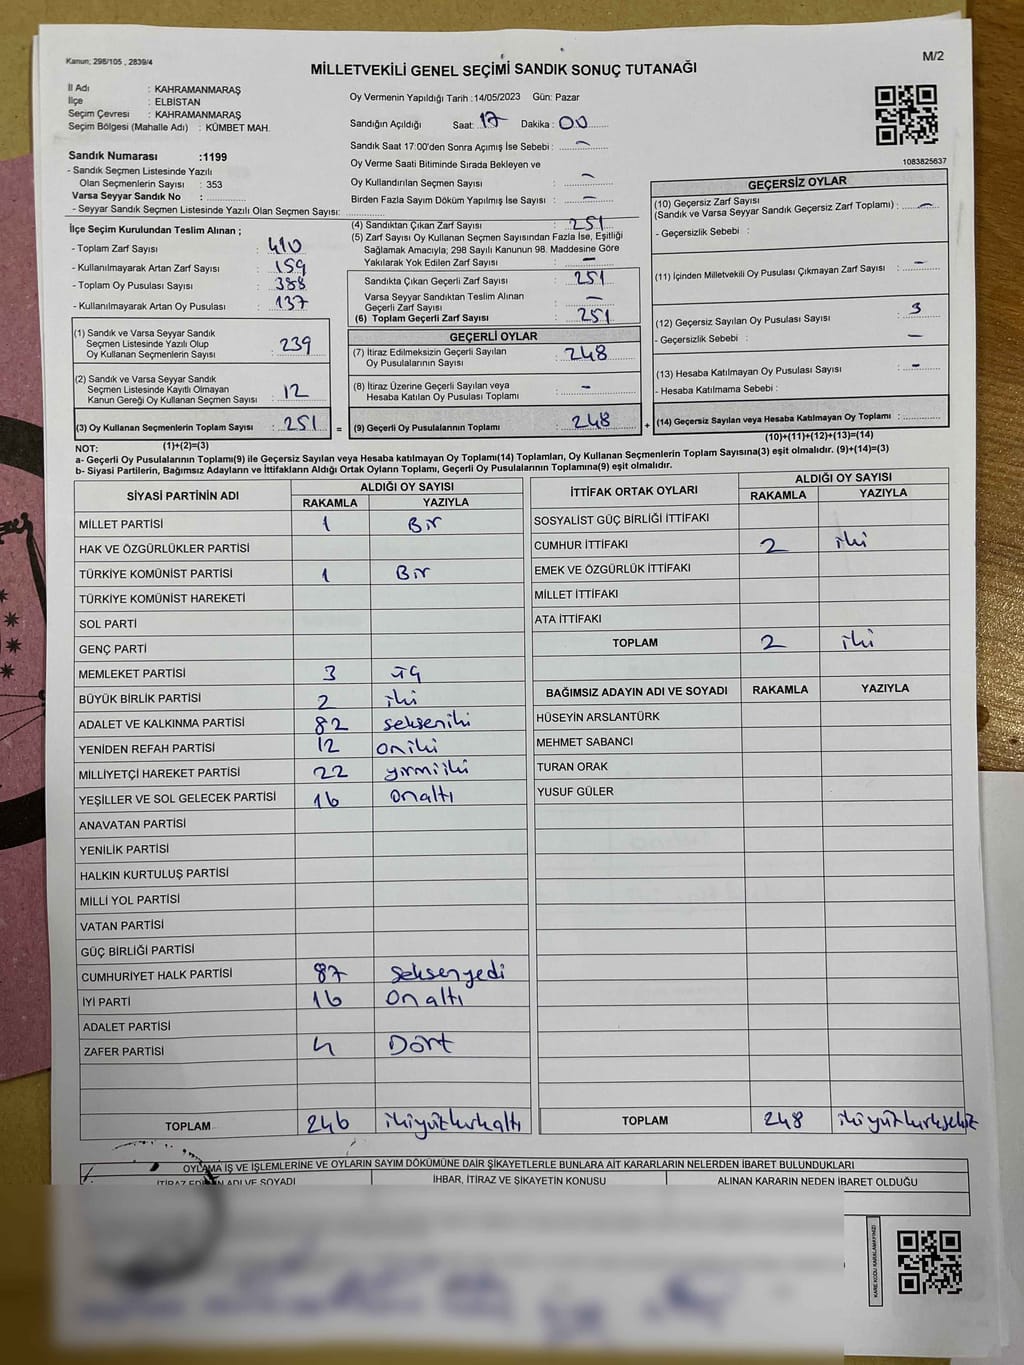 Kanun; 298/105 , 2839/4
M/2
MİLLETVEKİLİ GENEL SEÇİMİ SANDIK SONUÇ TUTANAĞI
İl Adı : KAHRAMANMARAŞ
İlçe : ELBİSTAN
Seçim Çevresi : KAHRAMANMARAŞ
Seçim Bölgesi (Mahalle Adı) : KÜMBET MAH.
Oy Vermenin Yapıldığı Tarih :14/05/2023 Gün: Pazar
Sandığın Açıldığı Saat: 17 Dakika: 00
Sandık Saat 17:00'den Sonra Açımış İse Sebebi : -
Oy Verme Saati Bitiminde Sırada Bekleyen ve
Oy Kullandırılan Seçmen Sayısı : -
Birden Fazla Sayım Döküm Yapılmış İse Sayısı : -
1083825637
Sandık Numarası :1199
- Sandık Seçmen Listesinde Yazılı
Olan Seçmenlerin Sayısı : 353
Varsa Seyyar Sandık No :
- Seyyar Sandık Seçmen Listesinde Yazılı Olan Seçmen Sayısı:
İlçe Seçim Kurulundan Teslim Alınan ;
- Toplam Zarf Sayısı : 410
- Kullanılmayarak Artan Zarf Sayısı : 159
- Toplam Oy Pusulası Sayısı : 388
- Kullanılmayarak Artan Oy Pusulası : 137
(1) Sandık ve Varsa Seyyar Sandık
Seçmen Listesinde Yazılı Olup
Oy Kullanan Seçmenlerin Sayısı : 239
(2) Sandık ve Varsa Seyyar Sandık
Seçmen Listesinde Kayıtlı Olmayan
Kanun Gereği Oy Kullanan Seçmen Sayısı : 12
(3) Oy Kullanan Seçmenlerin Toplam Sayısı : 251 =
(4) Sandıktan Çıkan Zarf Sayısı : 251
(5) Zarf Sayısı Oy Kullanan Seçmen Sayısından Fazla İse, Eşitliği
Sağlamak Amacıyla; 298 Sayılı Kanunun 98. Maddesine Göre
Yakılarak Yok Edilen Zarf Sayısı : -
Sandıkta Çıkan Geçerli Zarf Sayısı : 251
Varsa Seyyar Sandıktan Teslim Alınan
Geçerli Zarf Sayısı : -
(6) Toplam Geçerli Zarf Sayısı : 251
GEÇERLİ OYLAR
(7) İtiraz Edilmeksizin Geçerli Sayılan
Oy Pusulalarının Sayısı : 248
(8) İtiraz Üzerine Geçerli Sayılan veya
Hesaba Katılan Oy Pusulası Toplamı : -
(9) Geçerli Oy Pusulalarının Toplamı : 248 +
GEÇERSİZ OYLAR
(10) Geçersiz Zarf Sayısı
(Sandık ve Varsa Seyyar Sandık Geçersiz Zarf Toplamı) : -
- Geçersizlik Sebebi :
(11) İçinden Milletvekili Oy Pusulası Çıkmayan Zarf Sayısı : -
(12) Geçersiz Sayılan Oy Pusulası Sayısı : 3
- Geçersizlik Sebebi : -
(13) Hesaba Katılmayan Oy Pusulası Sayısı : -
- Hesaba Katılmama Sebebi :
(14) Geçersiz Sayılan veya Hesaba Katılmayan Oy Toplamı :
NOT: (1)+(2)=(3) (10)+(11)+(12)+(13)=(14)
a- Geçerli Oy Pusulalarının Toplamı(9) ile Geçersiz Sayılan veya Hesaba katılmayan Oy Toplamı(14) Toplamları, Oy Kullanan Seçmenlerin Toplam Sayısına(3) eşit olmalıdır. (9)+(14)=(3)
b- Siyasi Partilerin, Bağımsız Adayların ve İttifakların Aldığı Ortak Oyların Toplamı, Geçerli Oy Pusulalarının Toplamına(9) eşit olmalıdır.
SİYASİ PARTİNİN ADI ALDIĞI OY SAYISI
RAKAMLA YAZIYLA
MİLLET PARTİSİ 1 Bir
HAK VE ÖZGÜRLÜKLER PARTİSİ
TÜRKİYE KOMÜNİST PARTİSİ 1 Bir
TÜRKİYE KOMÜNİST HAREKETİ
SOL PARTİ
GENÇ PARTİ
MEMLEKET PARTİSİ 3 üç
BÜYÜK BİRLİK PARTİSİ 2 iki
ADALET VE KALKINMA PARTİSİ 82 sekseniki
YENİDEN REFAH PARTİSİ 12 oniki
MİLLİYETÇİ HAREKET PARTİSİ 22 yirmiiki
YEŞİLLER VE SOL GELECEK PARTİSİ 16 onaltı
ANAVATAN PARTİSİ
YENİLİK PARTİSİ
HALKIN KURTULUŞ PARTİSİ
MİLLİ YOL PARTİSİ
VATAN PARTİSİ
GÜÇ BİRLİĞİ PARTİSİ
CUMHURİYET HALK PARTİSİ 87 seksenyedi
İYİ PARTİ 16 Onaltı
ADALET PARTİSİ
ZAFER PARTİSİ 4 Dört
TOPLAM 246 ikiyüzkırkaltı
İTTİFAK ORTAK OYLARI ALDIĞI OY SAYISI
RAKAMLA YAZIYLA
SOSYALİST GÜÇ BİRLİĞİ İTTİFAKI
CUMHUR İTTİFAKI 2 iki
EMEK VE ÖZGÜRLÜK İTTİFAKI
MİLLET İTTİFAKI
ATA İTTİFAKI
TOPLAM 2 iki
BAĞIMSIZ ADAYIN ADI VE SOYADI RAKAMLA YAZIYLA
HÜSEYİN ARSLANTÜRK
MEHMET SABANCI
TURAN ORAK
YUSUF GÜLER
TOPLAM 248 ikiyüzkırksekiz
OYLAMA İŞ VE İŞLEMLERİNE VE OYLARIN SAYIM DÖKÜMÜNE DAİR ŞİKAYETLERLE BUNLARA AİT KARARLARIN NELERDEN İBARET BULUNDUKLARI
İTİRAZ EDENİN ADI VE SOYADI İHBAR, İTİRAZ VE ŞİKAYETİN KONUSU ALINAN KARARIN NEDEN İBARET OLDUĞU
KARE KODU KARALAMAYINIZ!